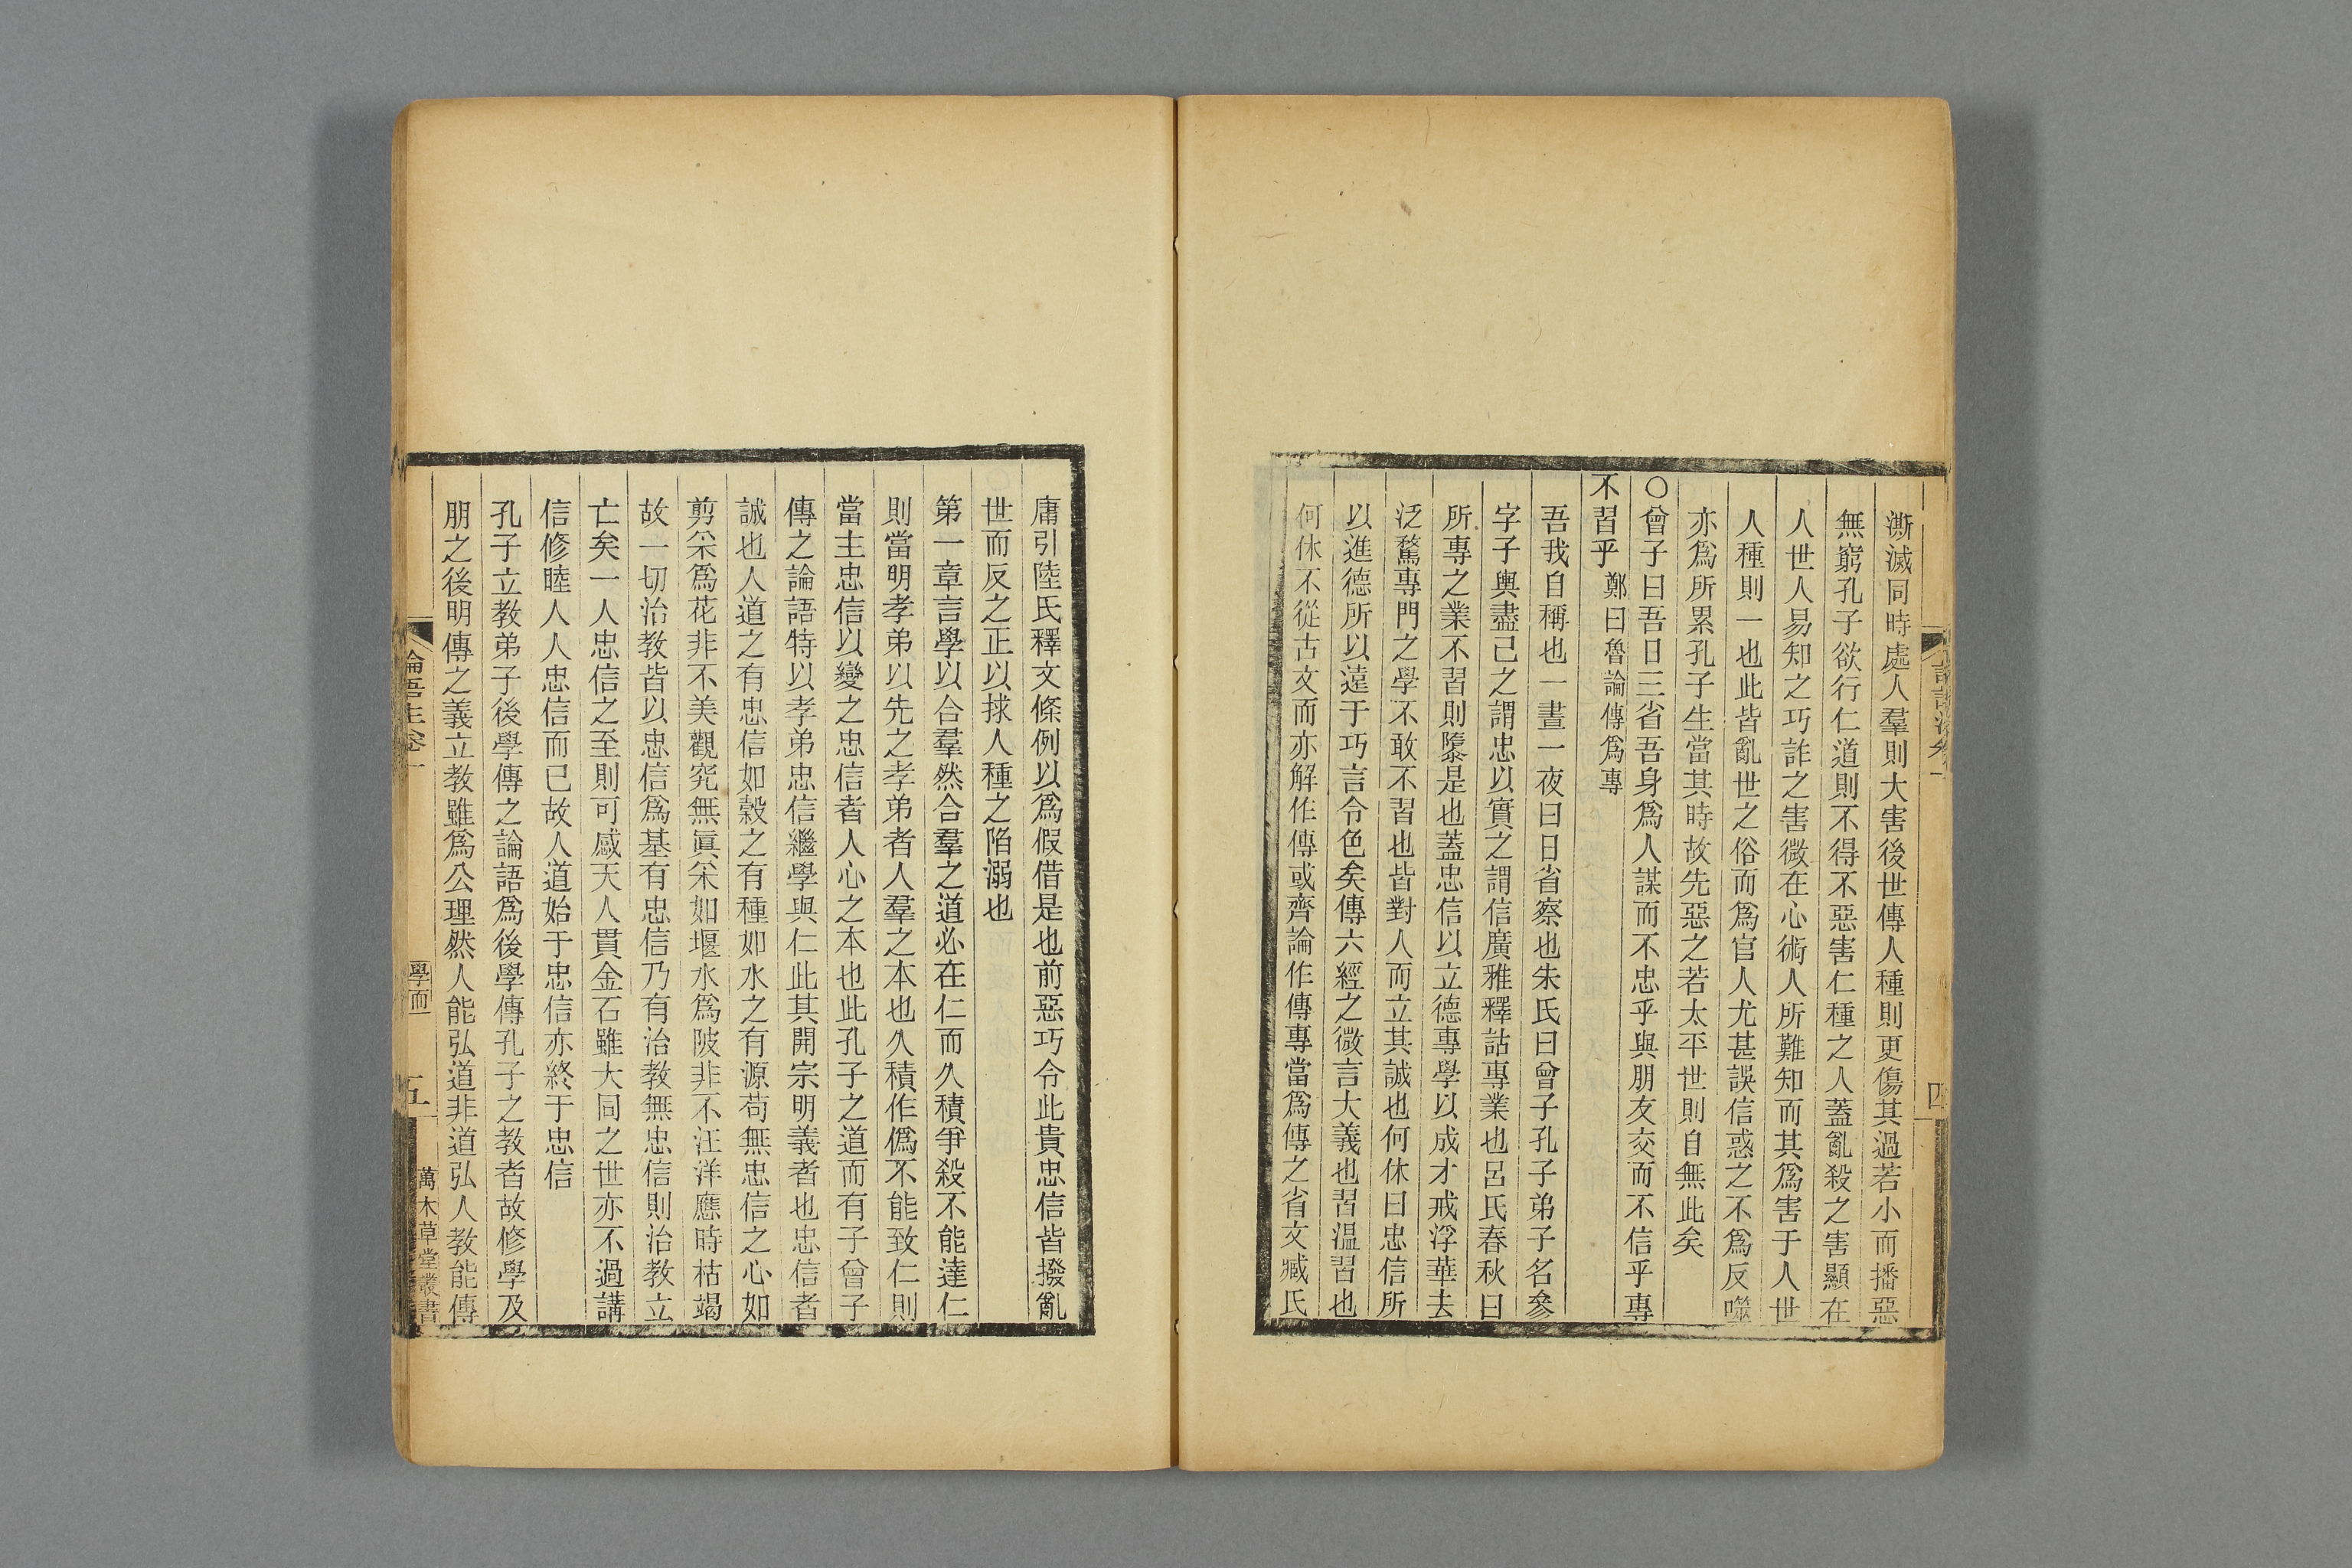 澌滅同時處人羣則大害後世傳人種則更傷其過若小而播惡
無窮孔子欲行仁道則不得不惡害仁種之人蓋亂殺之害顯在
人世人易知之巧詐之害微在心術人所難知而其爲害于人世
人種則一也此皆亂世之俗而爲官人尤甚誤信惑之不爲反噬
亦爲所累孔子生當其時故先惡之若太平世則自無此矣
〇曾子曰吾日三省吾身爲人謀而不忠乎與朋友交而不信乎專
不習乎鄭曰魯論傳爲專
吾我自稱也一晝一夜曰日省察也朱氏曰曾子孔子弟子名參
字子輿盡己之謂忠以實之謂信廣雅釋詁專業也呂氏春秋曰
所專之業不習則隳是也蓋忠信以立德專學以成才戒浮華去
泛騖專門之學不敢不習也皆對人而立其誠也何休曰忠信所
以進德所以遠于巧言令色矣傳六經之微言大義也習溫習也
何休不從古文而亦解作傳或齊論作傳專當爲傳之省文臧氏
庸引陸氏釋文條例以爲假借是也前惡巧令此貴忠信皆撥亂
世而反之正以捄人種之陷溺也
第一章言學以合羣然合羣之道必在仁而久積爭殺不能達仁
則當明孝弟以先之孝弟者人羣之本也久積作僞不能致仁則
當主忠信以變之忠信者人心之本也此孔子之道而有子曾子
傳之論語特以孝弟忠信繼學與仁此其開宗明義者也忠信者
誠也人道之有忠信如穀之有種如水之有源苟無忠信之心如
剪采爲花非不美觀究無眞采如堰水爲陂非不汪洋應時枯竭
故一切治教皆以忠信爲基有忠信乃有治教無忠信則治教立
亡矣一人忠信之至則可感天人貫金石雖大同之世亦不過講
信修睦人人忠信而已故人道始于忠信亦終于忠信
孔子立教弟子後學傳之論語爲後學傳孔子之教者故修學及
朋之後明傳之義立教雖爲公理然人能弘道非道弘人教能傳
論語注卷一
學而
五
萬木草堂叢書